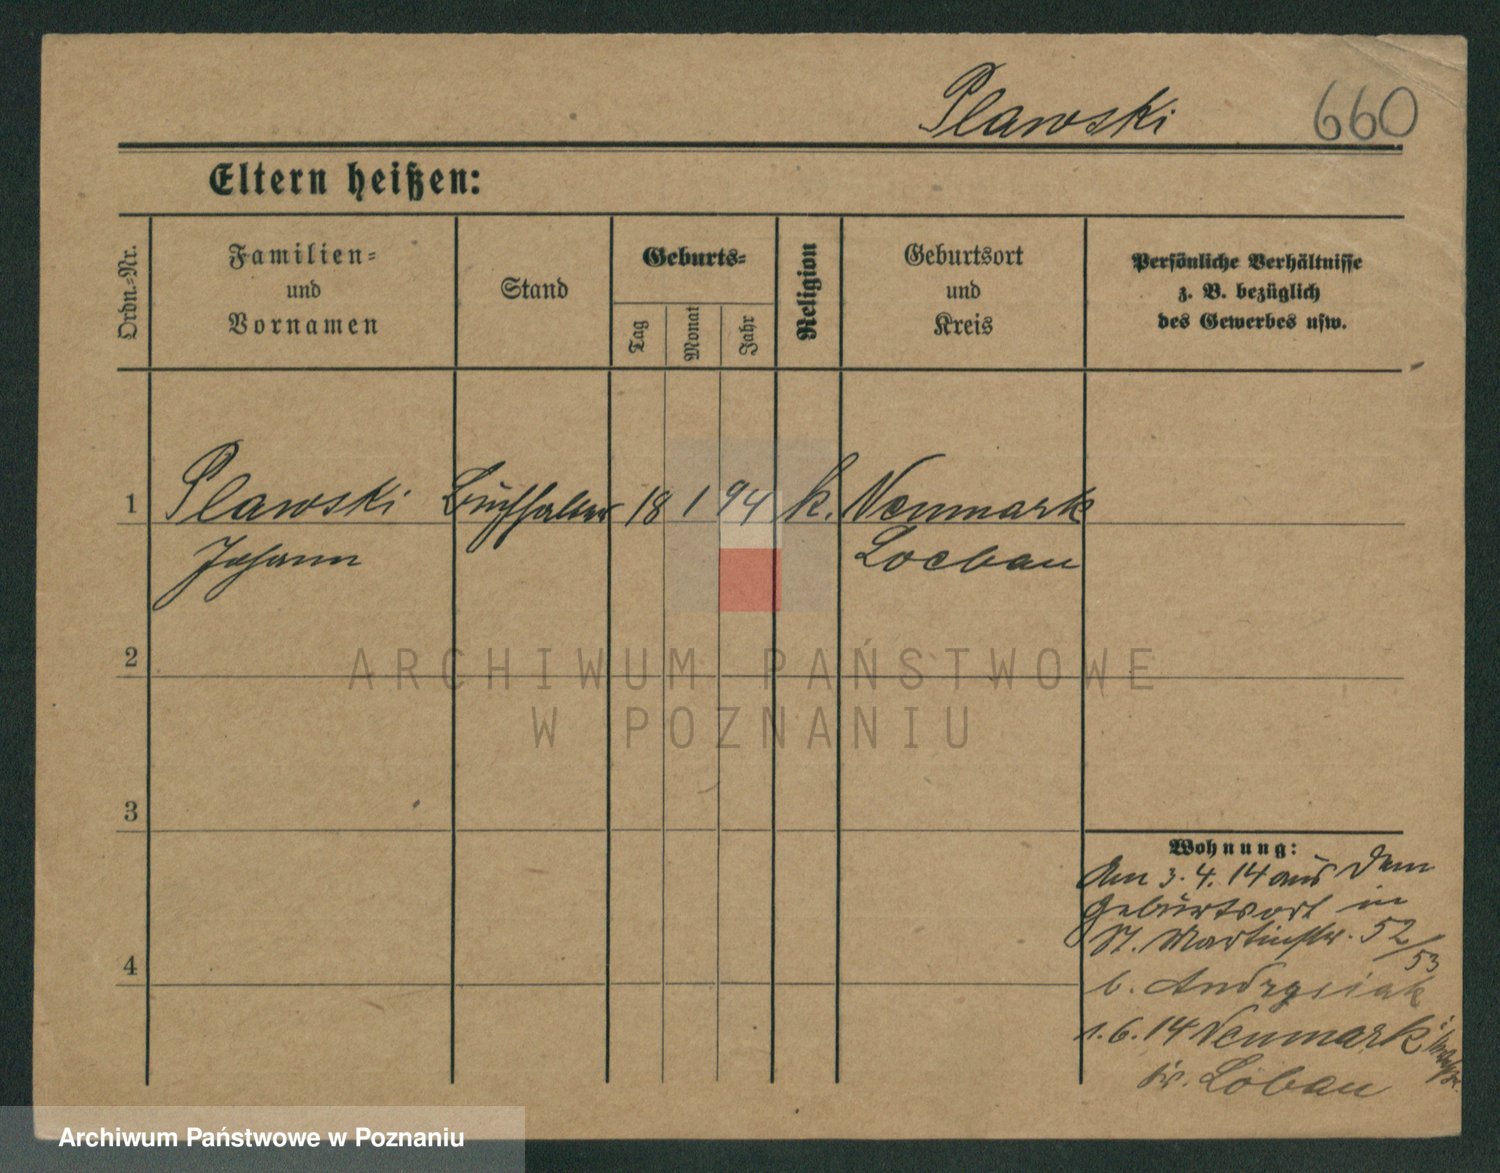 Plawski
660
Eltern heißen:
Ordn.-Nr.
Familien-
und
Vornamen
Stand
Geburts-
Tag
Monat
Jahr
Religion
Geburtsort
und
Kreis
Persönliche Verhältnisse
z. B. bezüglich
des Gewerbes usw.
1 Plawski Buchhalter 18 1 94 k. Neumark
Johann Loebau
2
3
4
Wohnung:
Am 3.4.14 aus dem
Geburtsort in
St. Martinstr. 52/53
b. Andrysiak
1.6.14 Neumark
Kr. Löbau
ARCHIWUM PAŃSTWOWE
W POZNANIU
Archiwum Państwowe w Poznaniu